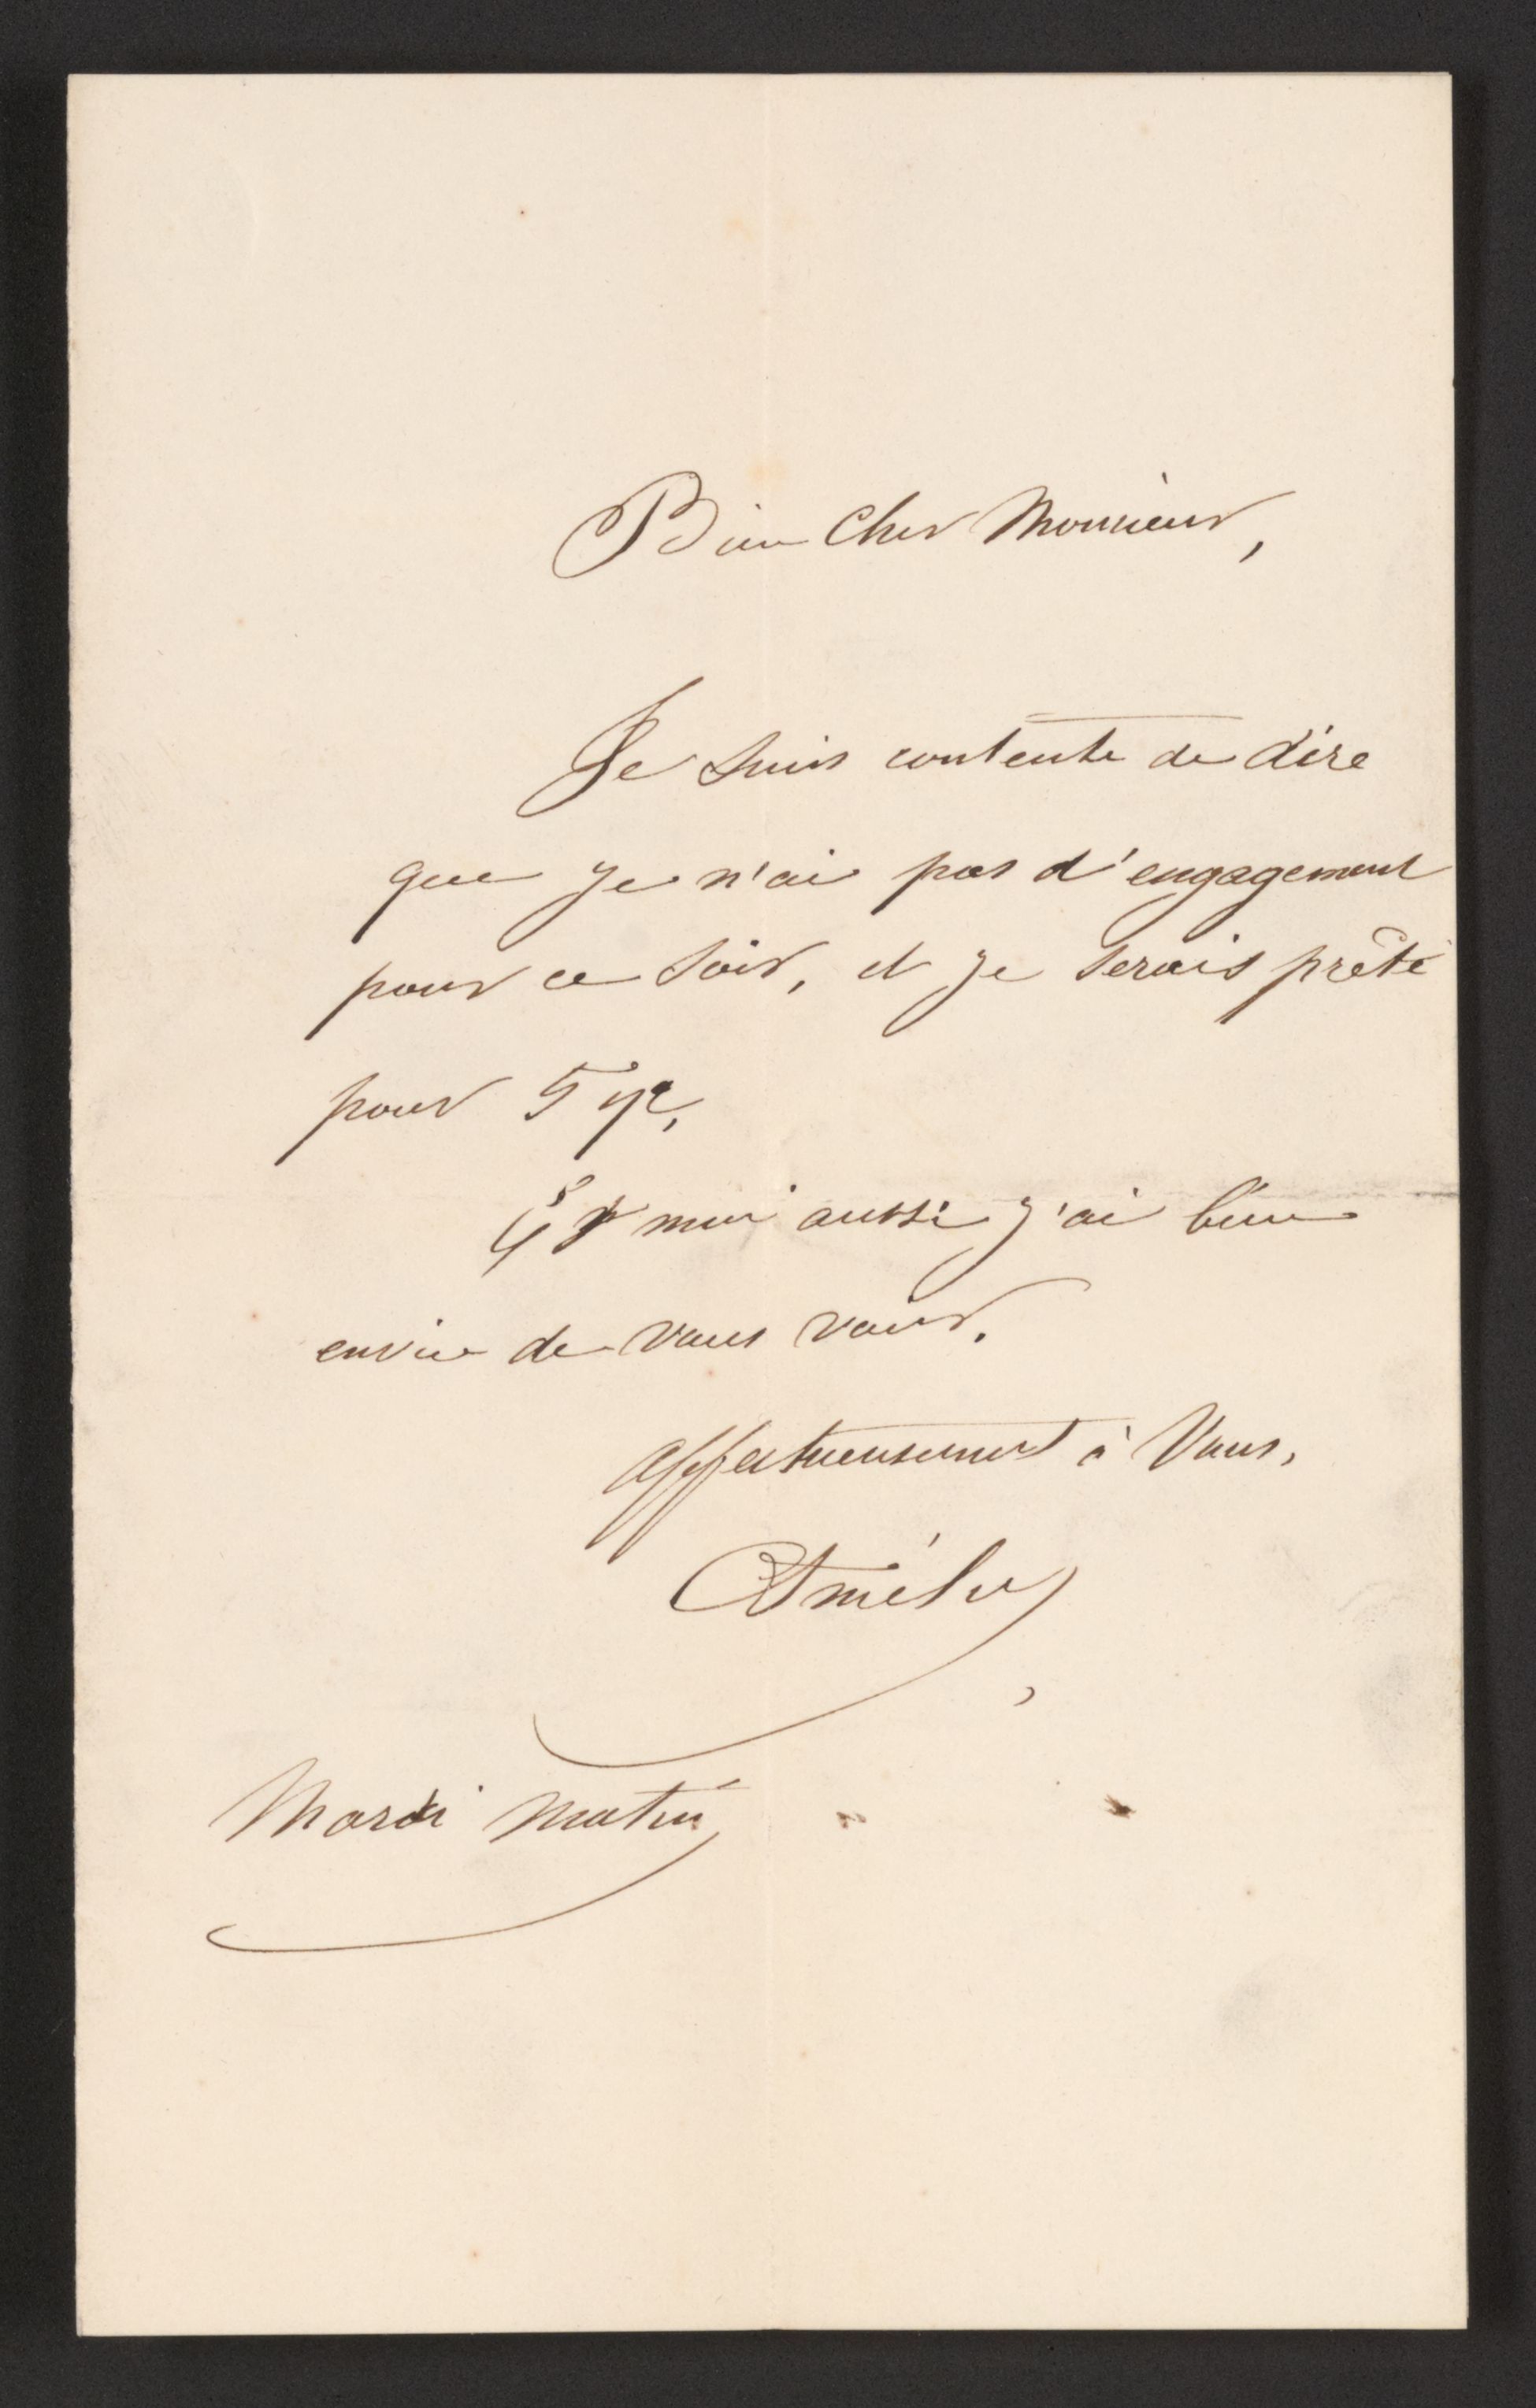 Bien Cher Monsieur,
Je suis contente de dire
que je n'ai pas d'engagement
pour ce soir, et je serais prête
pour 5
moi aussi j'ai bien
envie de vous voir.
Affectueusement à Vous,
Amély
Mardi Matin